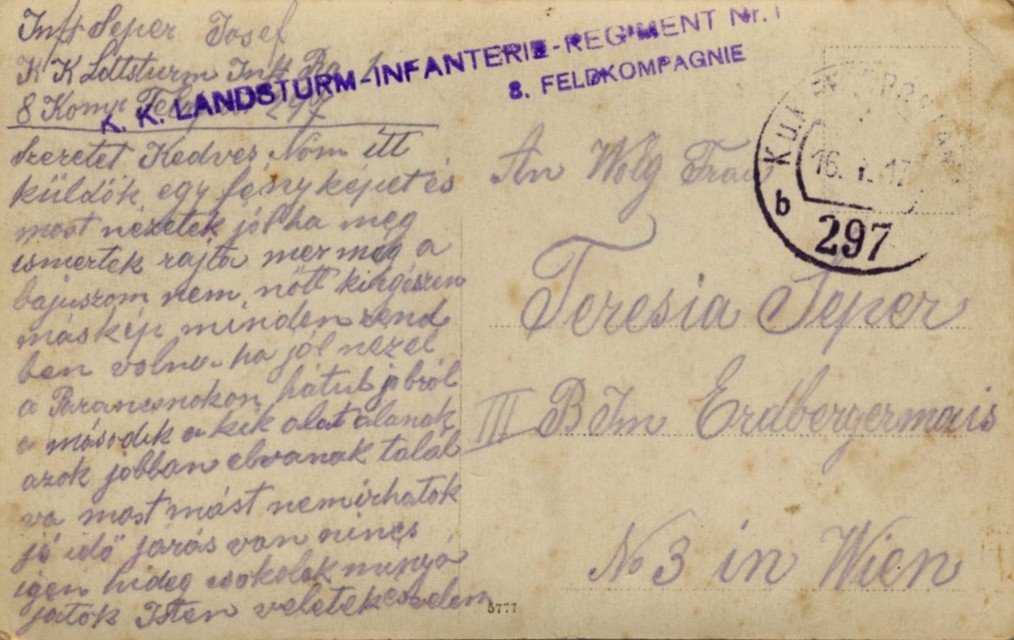 Inft Seper Josef
K K Lottsturm Inft Ba 1
8 Komp 297
K. K. LANDSTURM-INFANTERIE-REGIMENT Nr. 1
8. FELDKOMPAGNIE
Szeretet Kedves Nőm itt
küldök egy fényképet és
most nézetek jól ha meg
ismertek rajta mer meg a
bajuszom nem nőtt ki egészen
máskép minden rend
ben volna ha jól nézel
a Parancsnokon hátul jobról
a második a kik alat álanak
azok jobban elvanak talál
va most mást nem irhatok
jó idő jarás van nincs
igen hideg csokolok
jatok Isten veletek
K.u.K.
16. 17
b
297
An Wolg Frau
Teresia Seper
III Erdbergermais
No 3 in Wien
5777